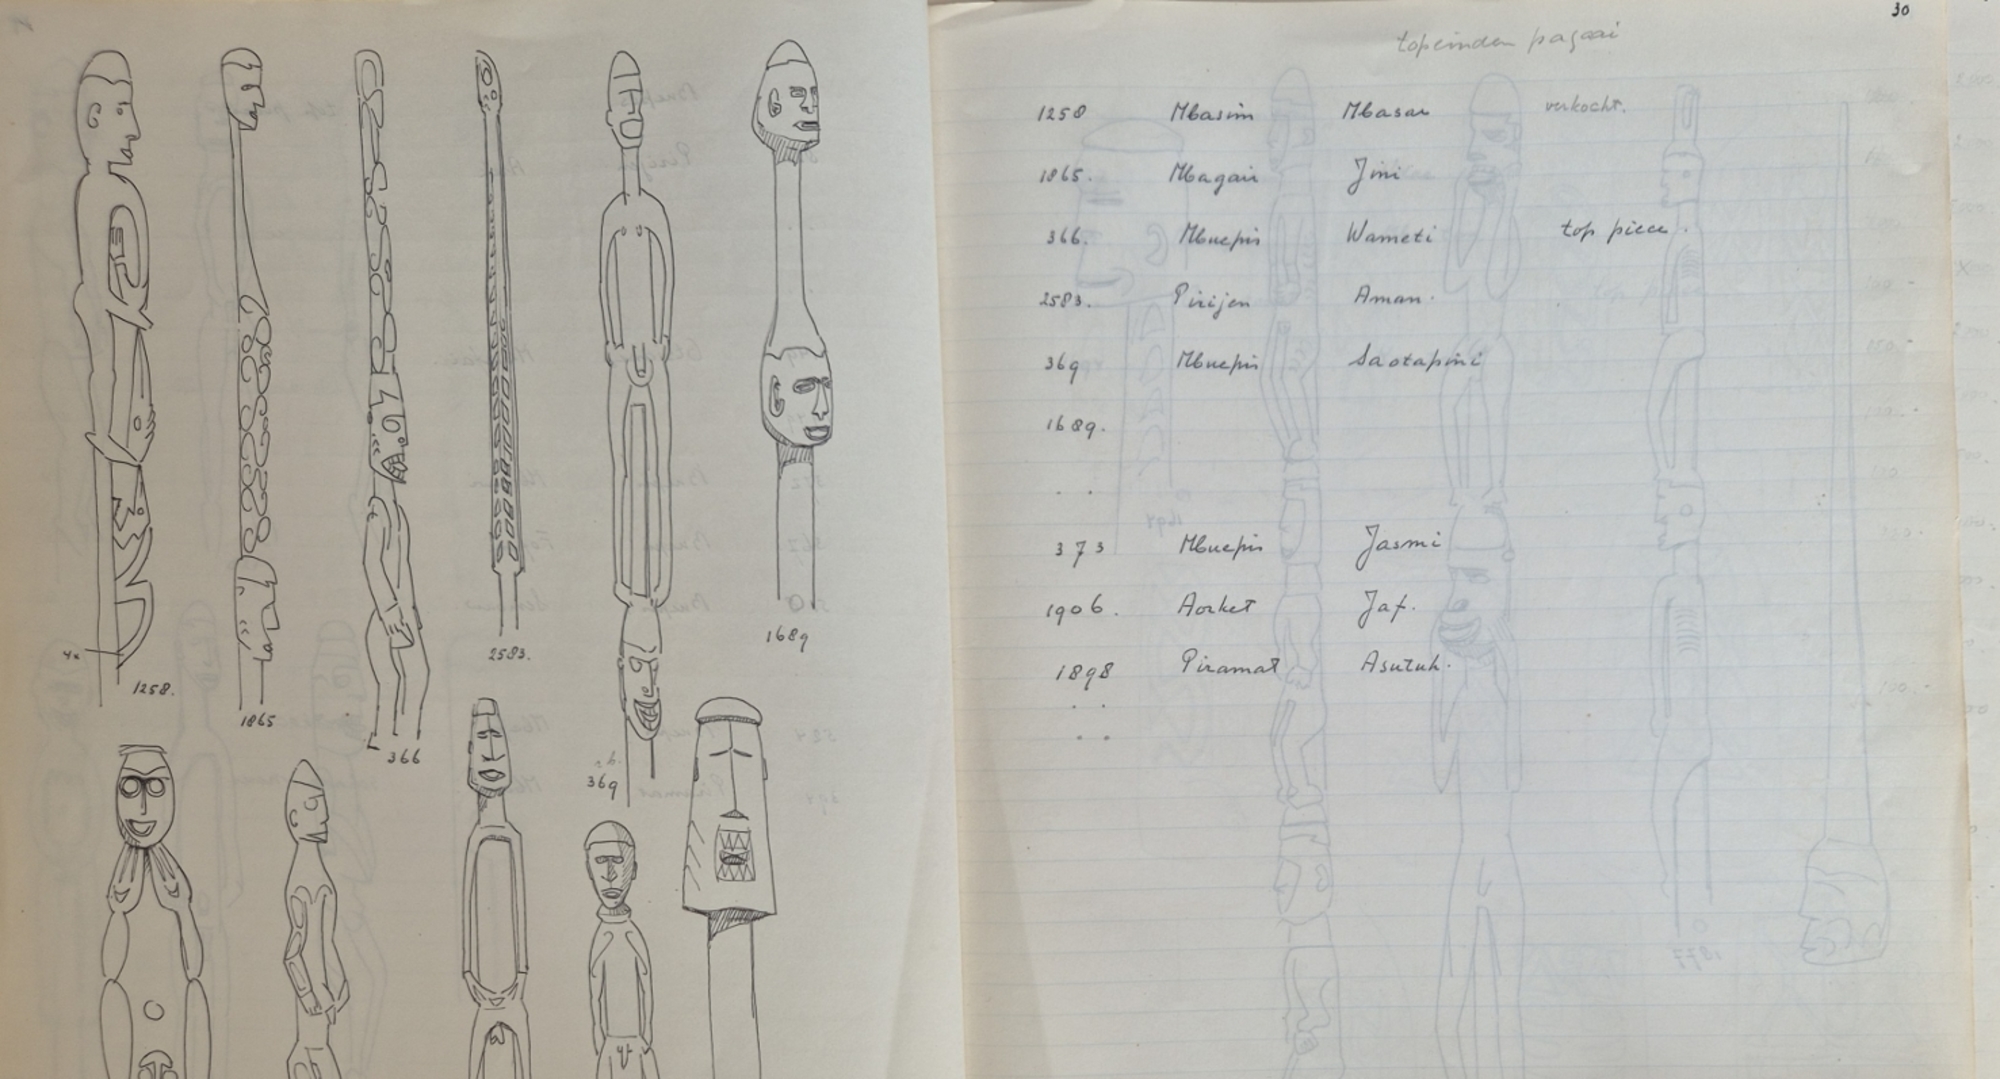 4x
1258.
1865
366
2583.
369
1689
30
topeinden pagaai
1258 Mbasim Mbasau verkocht.
1865. Mbagair Jini
366. Mbuepis Wameti top piece.
2583. Pirijen Aman.
369 Mbuepis Saotapini
1689.
. .
373 Mbuepis Jasmi
1906. Aorket Jaf.
1898 Piramat Asutuh.
. .
. .